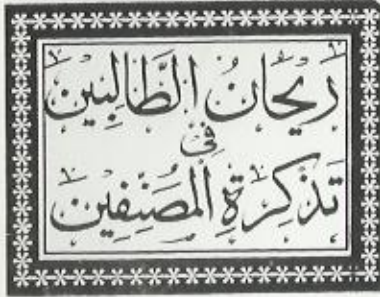 رَيْحَانُ الطَّالِبِيْن
فِي
تَذْكِرَةِ الْمُصَنِّفِيْن